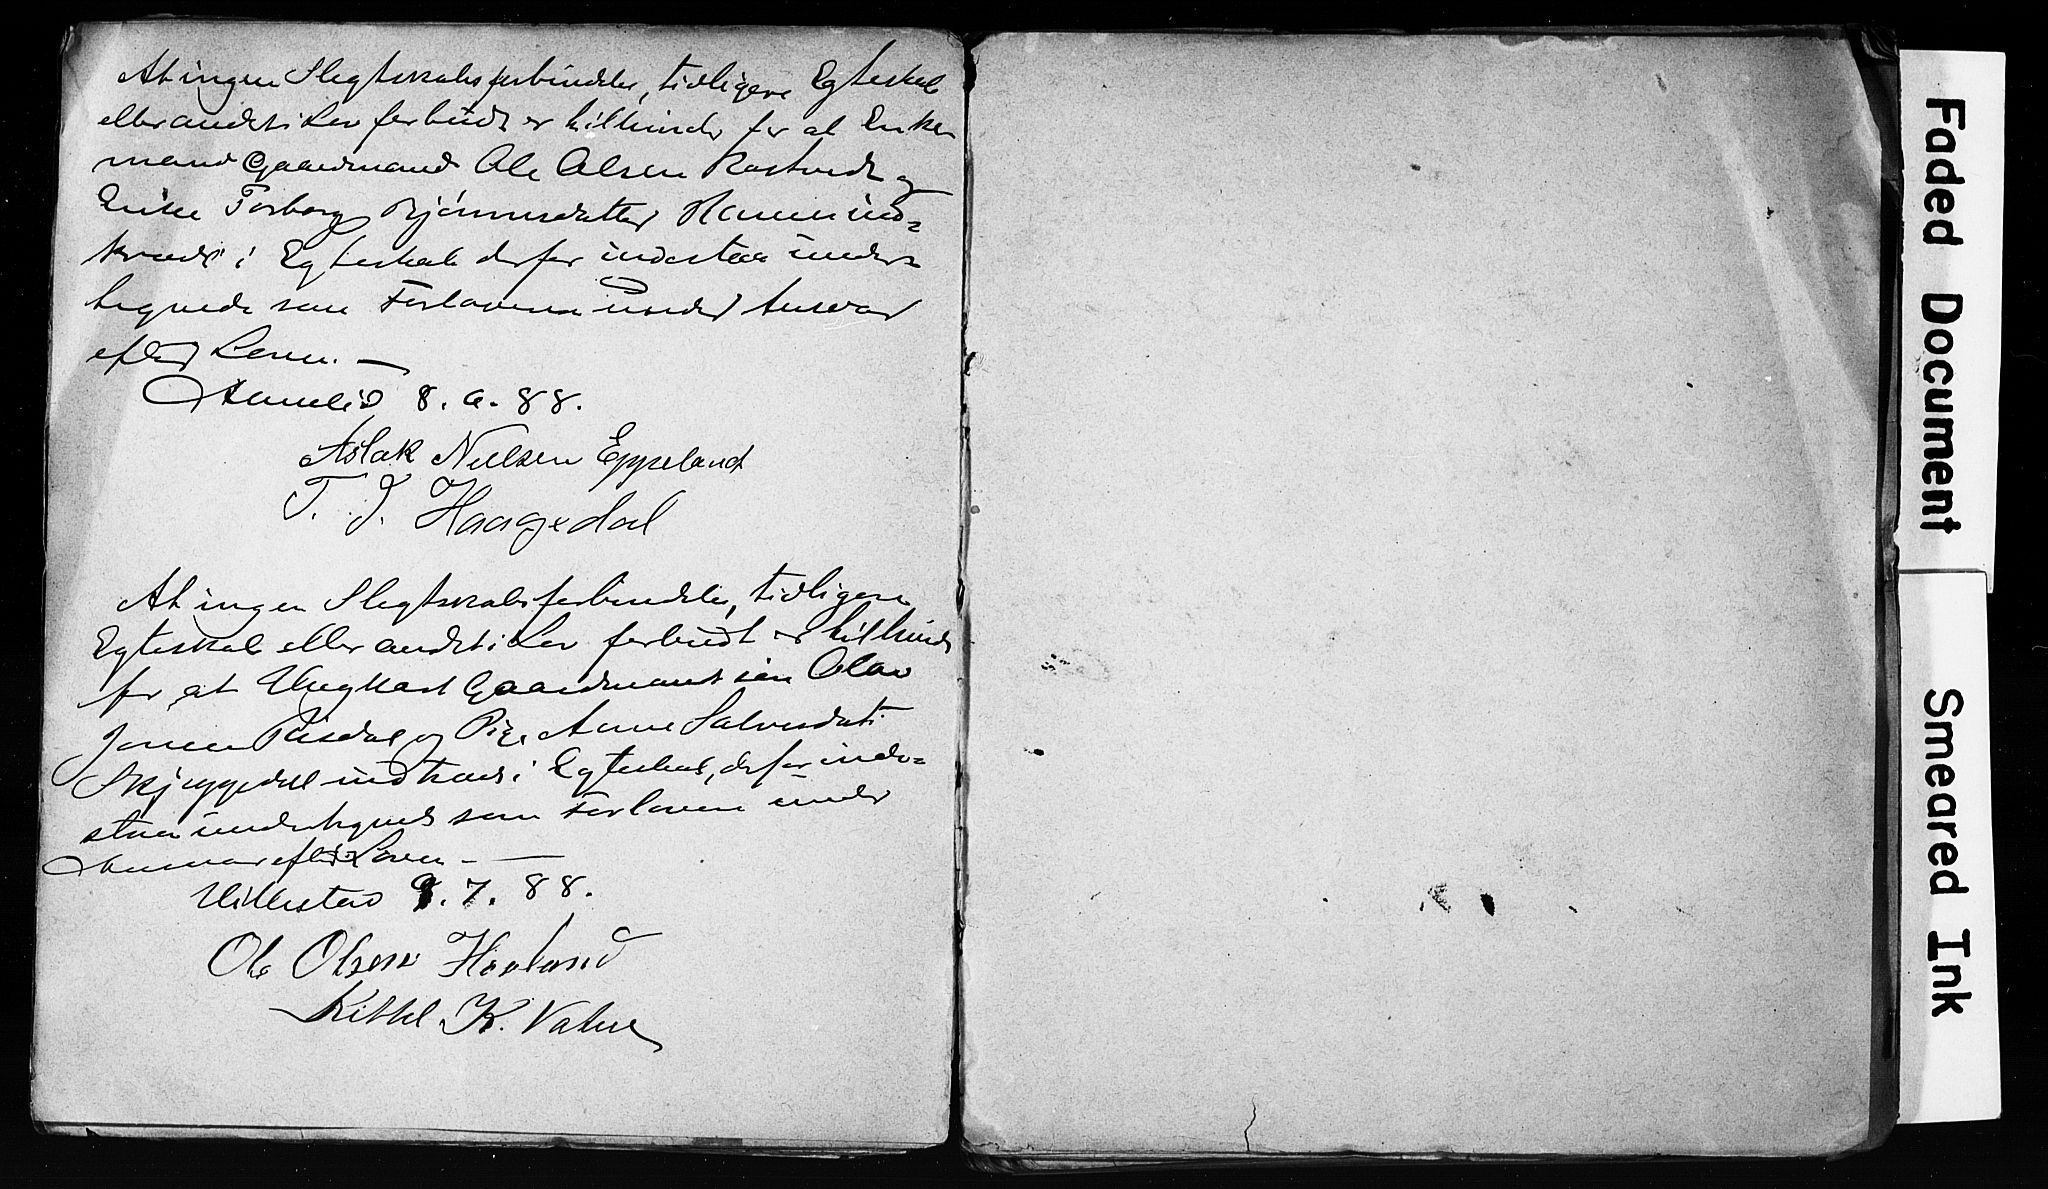 At ingen Slegtskabsforbindelse, tidligere Egteskab
eller andet i Lov forbudt er tilhinder for at Enke-
mand Gaardmand Ole Olsen Rostvedt og
Enke Torborg Bjørnsdatter Hamre ind=
træde i Egteskab derfor indestaa under=
tegnede som Forlovere under Ansvar
efter Loven. —
Aamlid 8. 6. 88.
Aslak Nielsen Eppeland
T. J. Haagedal
At ingen Slegtskabsforbindelse, tidligere
Egteskab eller andet i Lov forbudt er tilhinder
for at Ungkarl Gaardmandssøn Olav
Jonsen Risdal og Pige Anne Salvesdatt.
Skjeggedal indtræde i Egteskab, derfor inde=
staa undertegnede som Forlovere under
Ansvar efter Loven. —
Hillestad 9. 7. 88.
Ole Olsen Hovland
Kittel K. Vatne
Faded Document
Smeared Ink